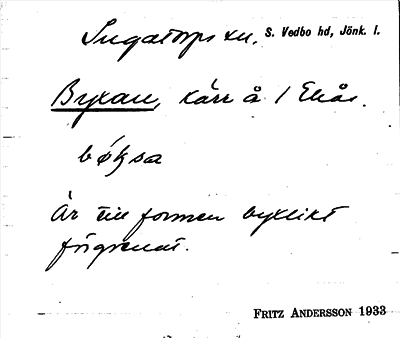 Ingatorps sn. S. Vedbo hd, Jönk. l.
Byxan, kärr å 1 Ekås.
Är till formen byxlikt
förgrenat.
FRITZ ANDERSSON 1933